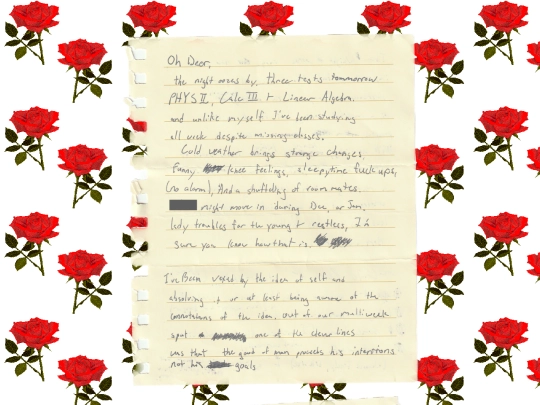 Oh Dear,
the night moves by, three tests tommorrow
PHYS II, Calc III + Linear Algebra.
and unlike myself I've been studying
all week despite missing classes.
Cold weather brings strange changes
funny knee feelings, sleepytime fuck ups,
(no alarm), And a shuffeling of roommates.
might move in during Dec, or Jan.
lady troubles for the young + restless, I'm
sure you know how that is.
I've Been vexed by the idea of self and
absolving it or at least being aware of the
connotations of the idea. out of our multiweek
spat one of the clever lines
was that the good of man proceeds his intentions
not his goals